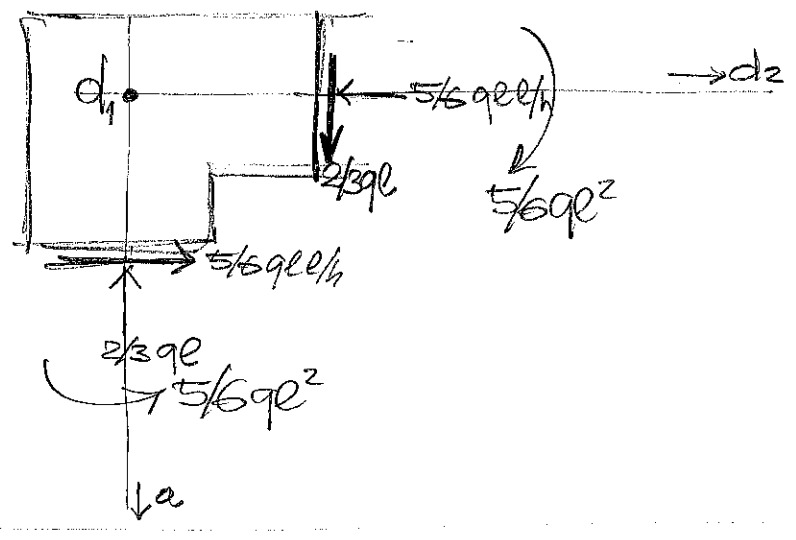 d2
d1
5/6 qll/h
2/3ql
5/6ql²
5/6qll/h
2/3 ql
5/6ql²
a